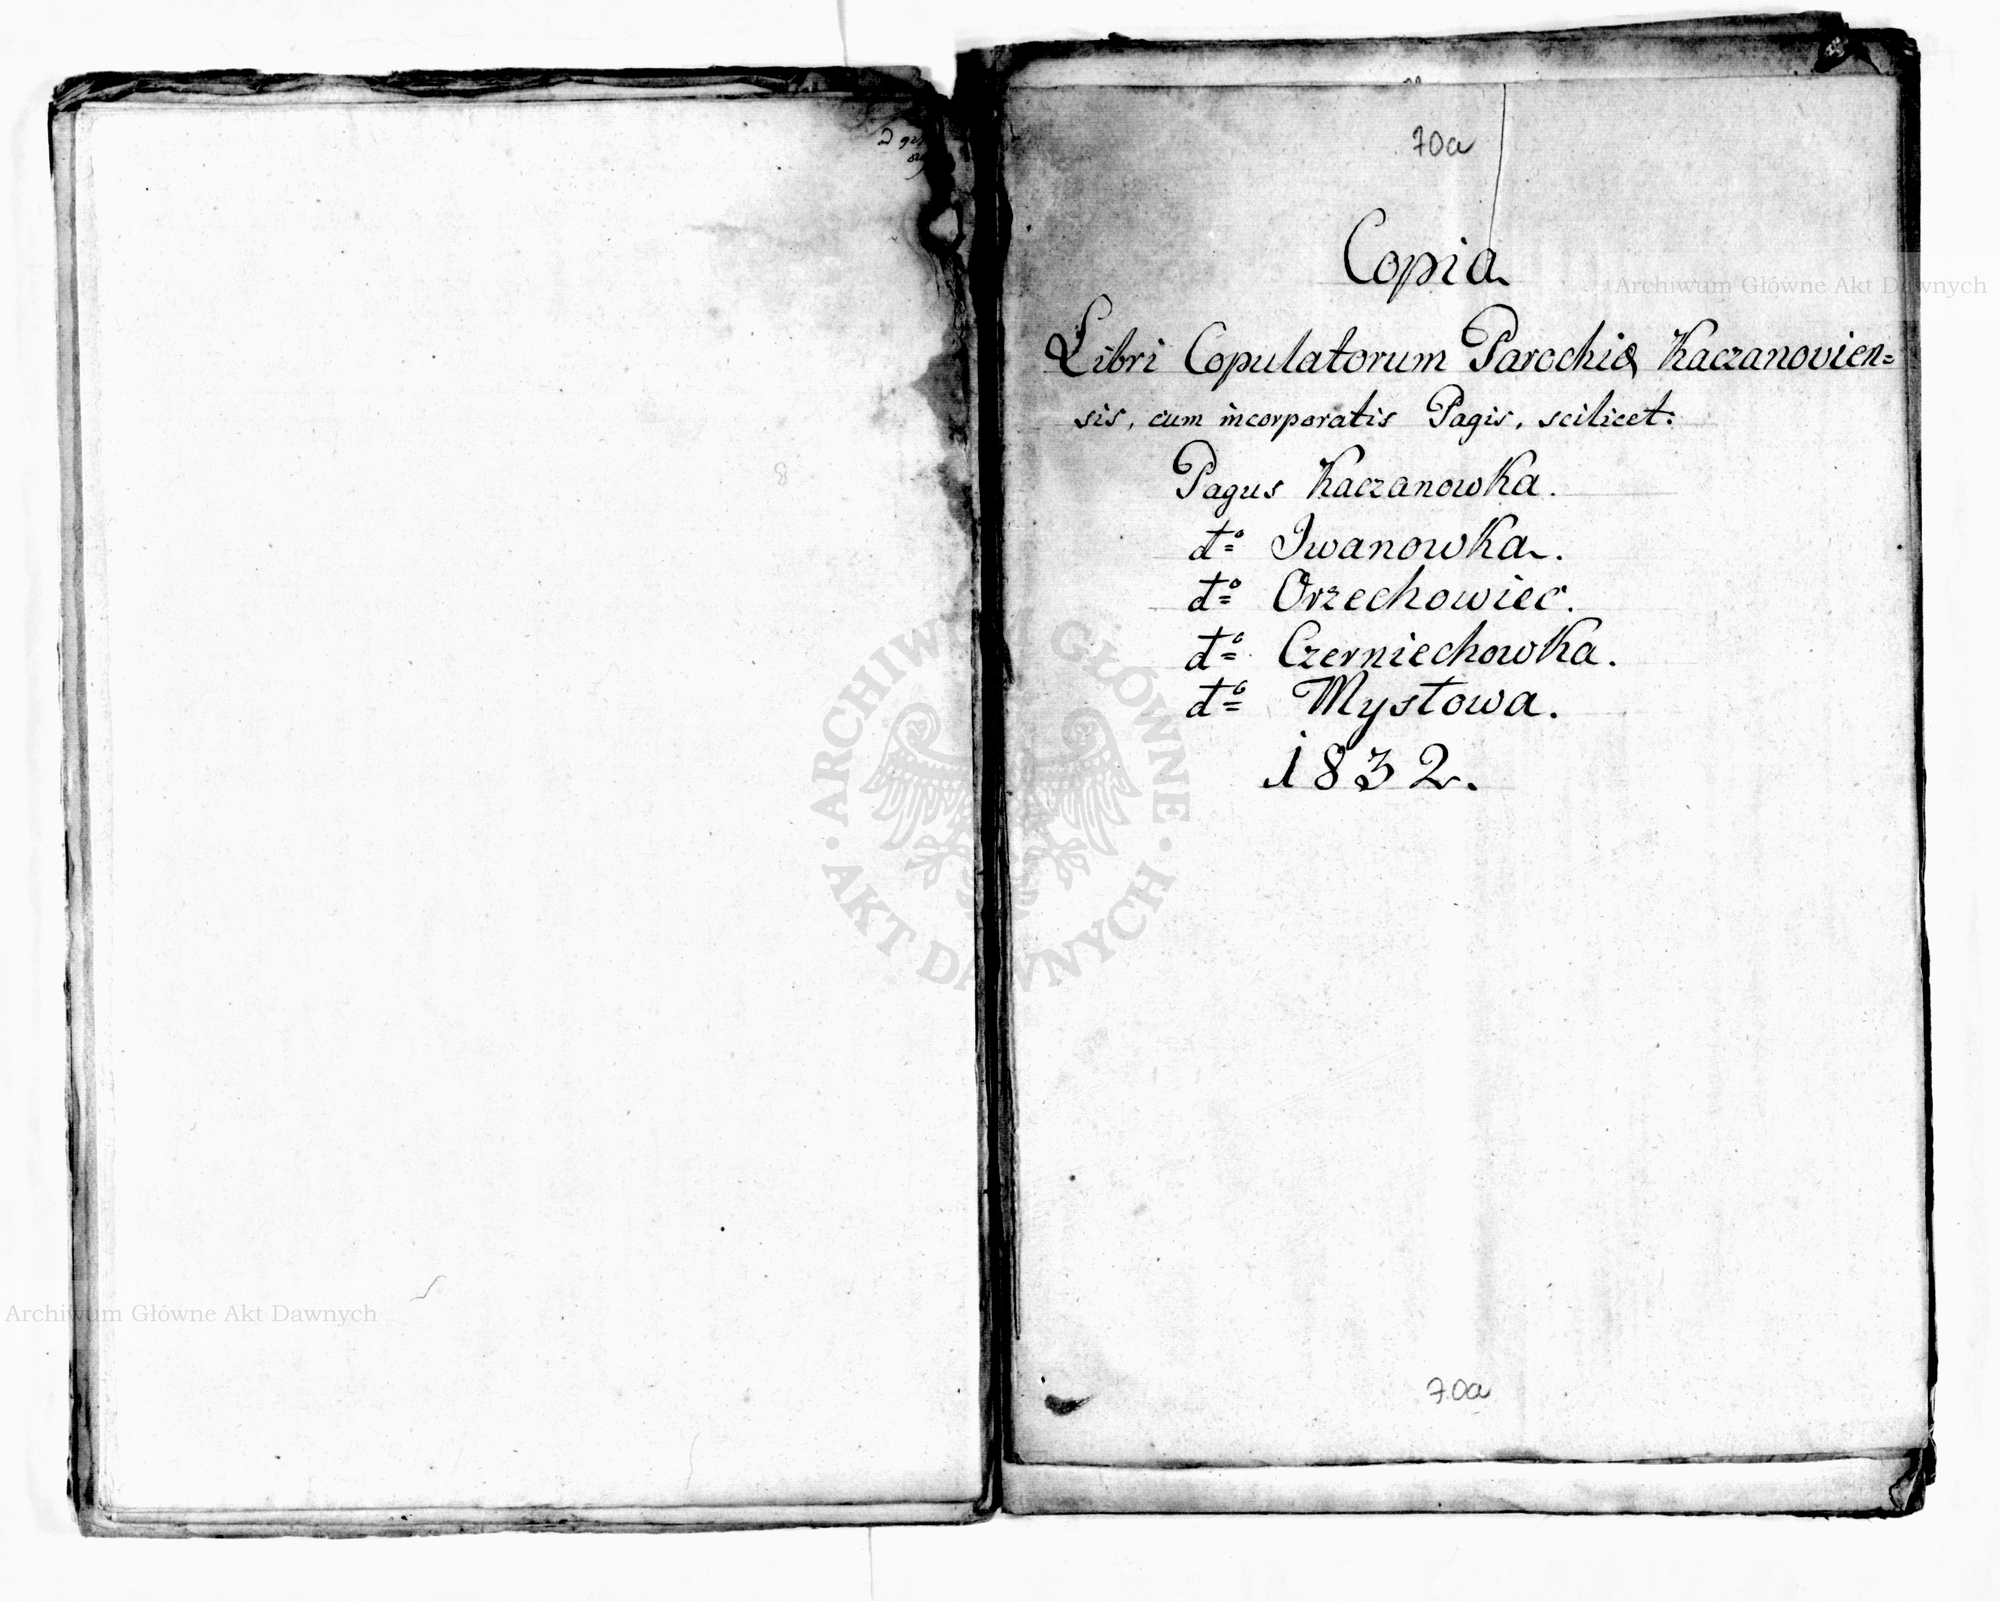 70a
Copia
Libri Copulatorum Parochiæ Kaczanovien=
sis, cum incorporatis Pagis, scilicet:
Pagus Kaczanowka.
dto Iwanowka.
dto Orzechowiec.
dto Czerniechowka.
dto Mystowa.
1832.
70a
Archiwum Główne Akt Dawnych
Archiwum Główne Akt Dawnych
ARCHIWUM GŁÓWNE · AKT DAWNYCH ·